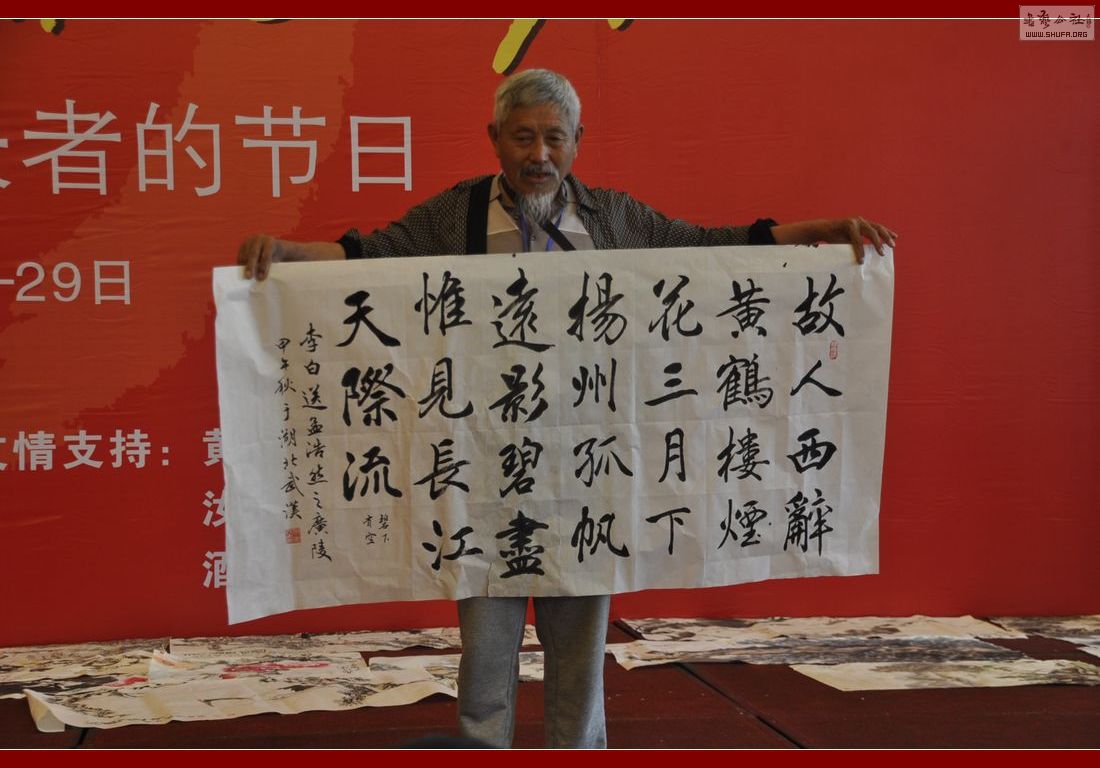 書藝公社
WWW.SHUFA.ORG
者的节日
-29日
情支持：
故人西辭
黄鶴樓煙
花三月下
揚州孤帆
遠影碧盡
惟見長江
天際流
碧下
有空
李白送孟浩然之廣陵
甲午秋于湖北武漢